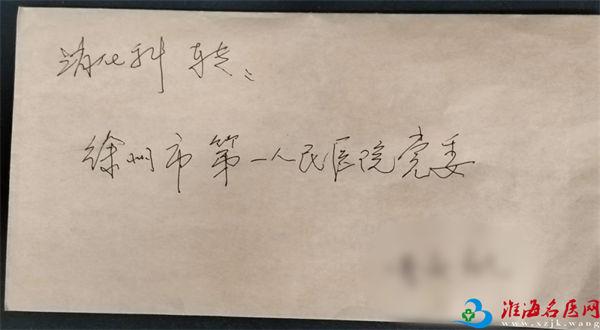 消化科 转:
徐州市第一人民医院党委
淮海名医网
www.xzjk.wang